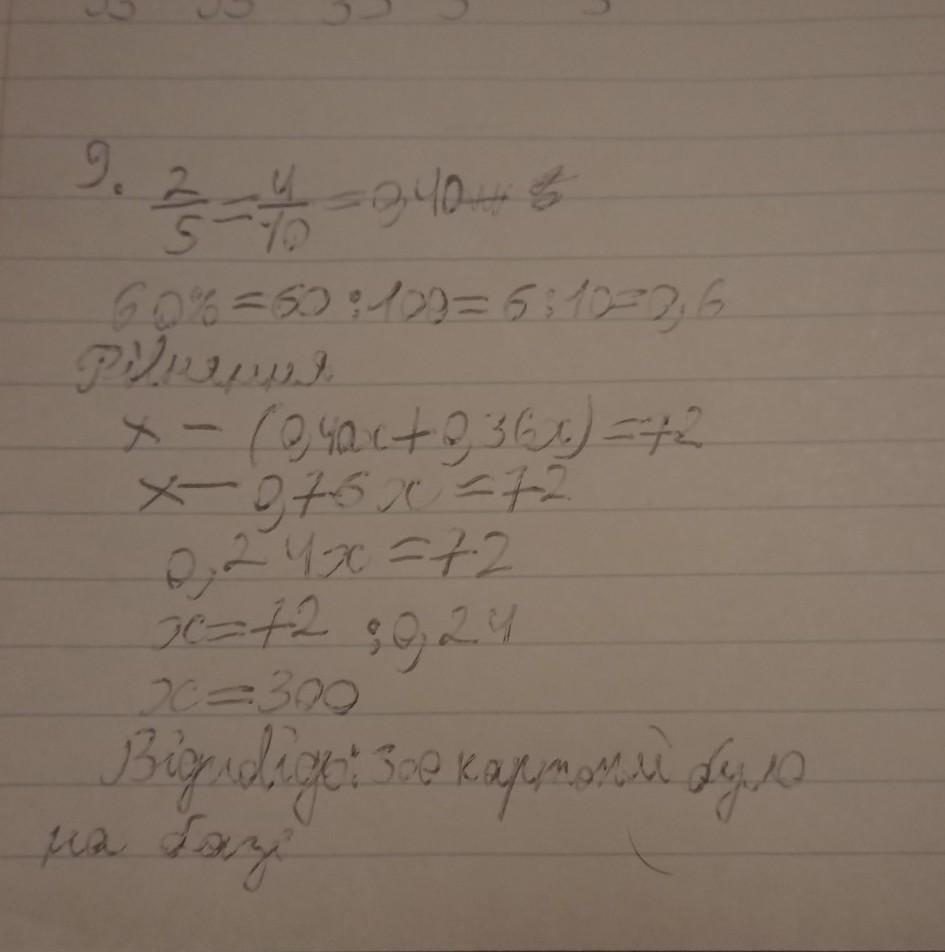 9. 2/5 = 4/10 = 0,40
60% = 60 : 100 = 6 : 10 = 0,6
Рівняння
x - (0,40x + 0,36x) = 72
x - 0,76x = 72
0,24x = 72
x = 72 : 0,24
x = 300
Відповідь: 300 картоплі було
на базі